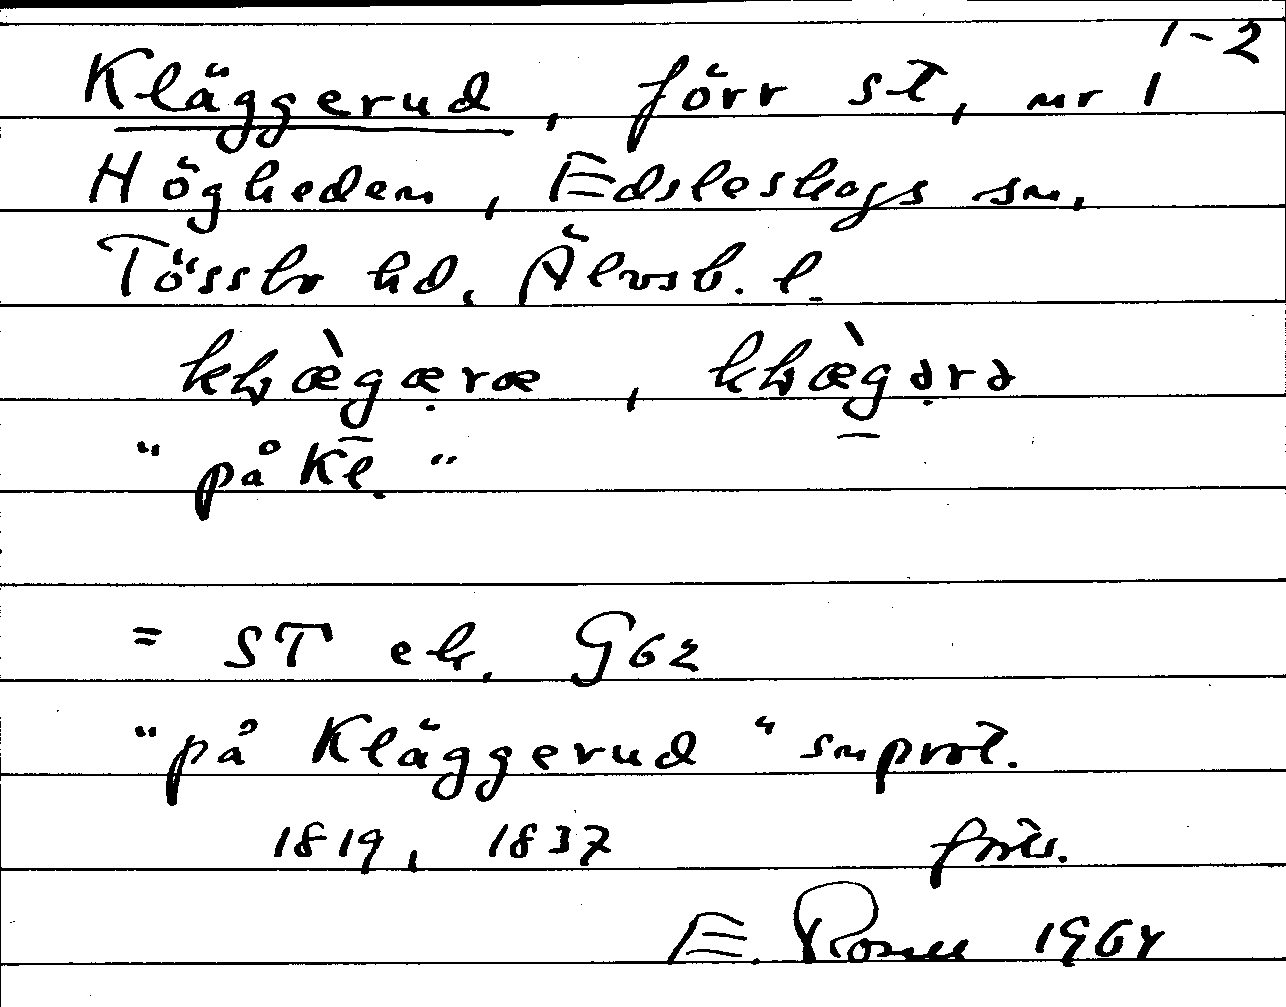 1-2
Kläggerud, förr st, nr 1
Högheden, Edsleskogs sn,
Tössbo hd, Älvsb. l.
"på Kl."
= ST ek. G62
"på Kläggerud" snprot.
1819, 1837 forts.
E. Rosell 1964